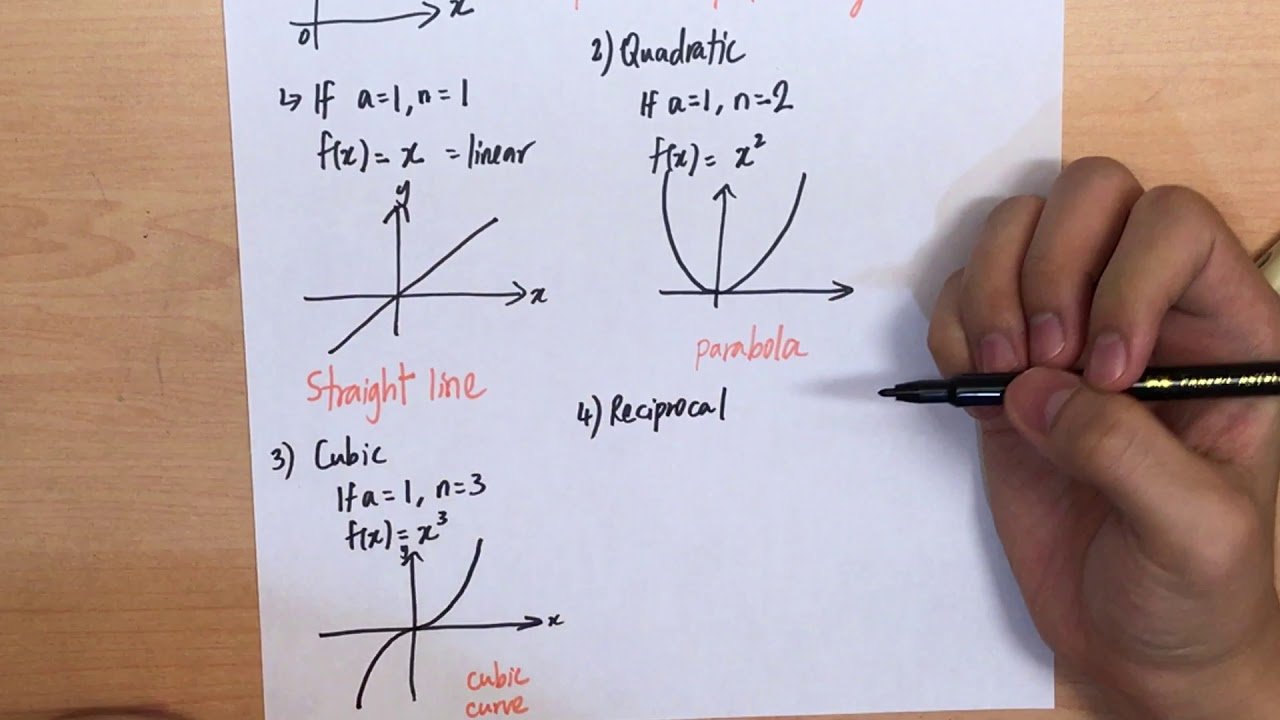 x
0
↳ If a=1, n=1
f(x)= x = linear
y
x
Straight line
2) Quadratic
If a=1, n=2
f(x)= x²
parabola
3) Cubic
If a=1, n=3
f(x)= x³
y
x
cubic
curve
4) Reciprocal